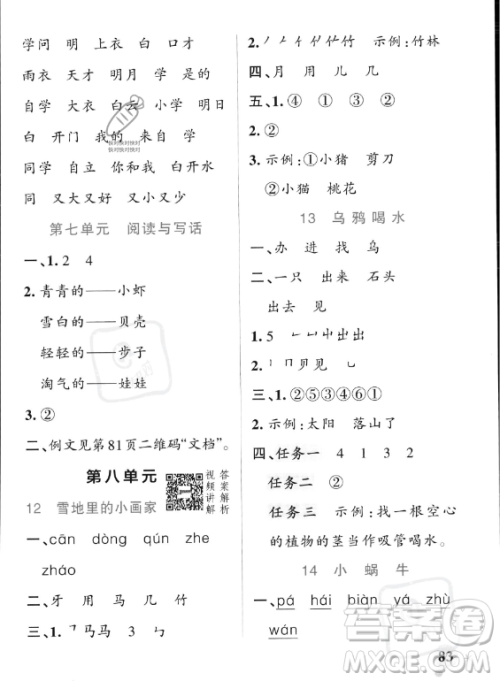 学问 明 上衣 白 口才
雨衣 天才 明月 学 是的
自学 大衣 白云 小学 明日
白 开门 我的 来 自学
同学 自立 你和我 白开水
同 又大又好 又小又少
第七单元 阅读与写话
一、1.2 4
2.青青的——小虾
雪白的——贝壳
轻轻的——步子
淘气的——娃娃
3.②
二、例文见第81页二维码“文档”。
第八单元
视频讲解
答案解析
12 雪地里的小画家
一、cān dòng qún zhe
zháo
二、牙 用 马 几 竹
三、1.㇕马马 马 3
2.丿𠂉𠂉竹竹竹 示例：竹林
四、月 用 儿 几
五、1.④ ① ②
2.②
3.示例：①小猪 剪刀
②小猫 桃花
13 乌鸦喝水
一、办 进 找 乌
二、一只 出来 石头
出去 出现
1.5 出出出
2.丨冂贝见 见 4
三、1.②⑤③④⑥①
2.示例：太阳 落山了
四、任务一 4 1 3 2
任务二 ②
任务三 示例：找一根空心
的植物的茎当作吸管喝水。
14 小蜗牛
一、pá hái biàn yá bù
wán
83
答案圈
MXQE.COM